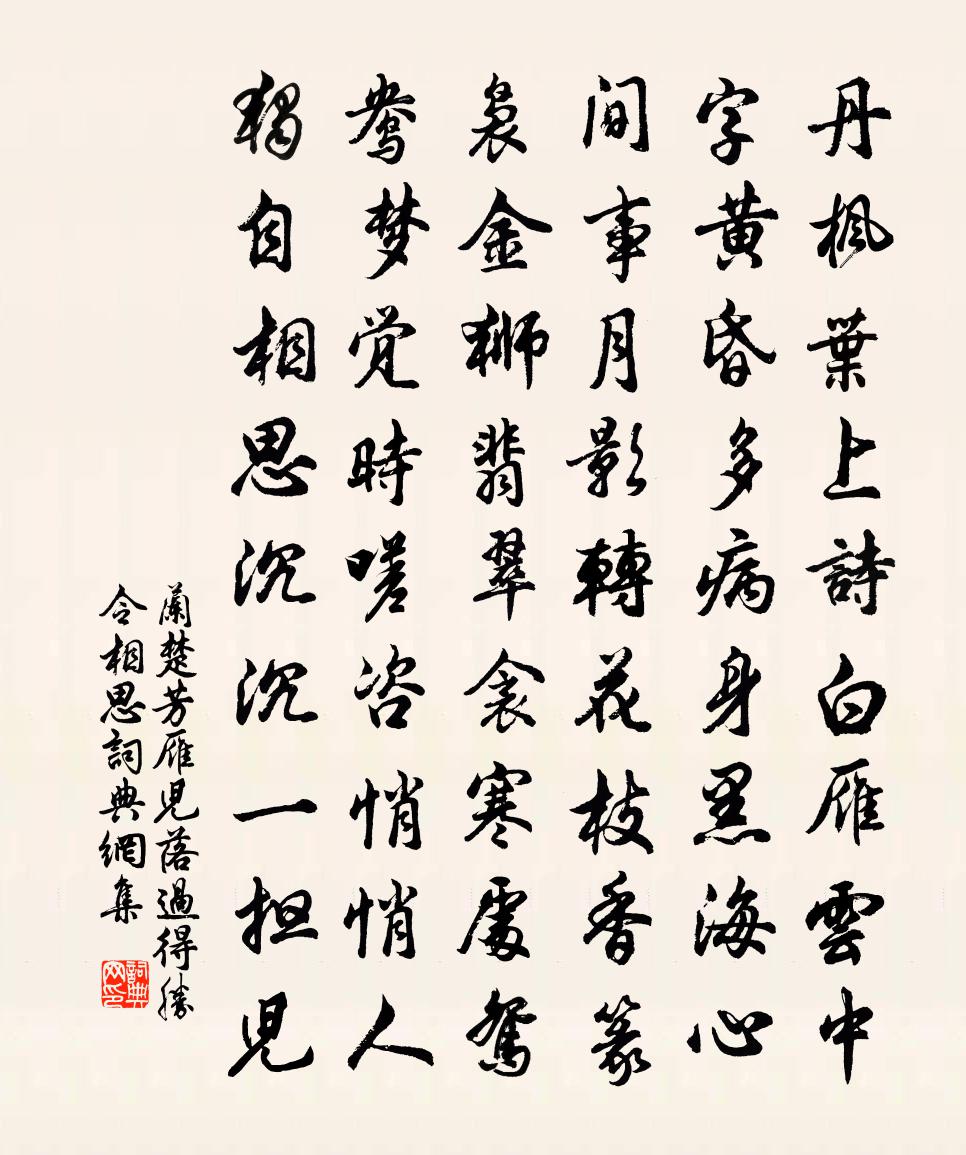 丹楓葉上詩白雁雲中
字黄昏多病身黑海心
间事月影轉花枝香篆
裊金狮翡翠衾寒處鸳
鸯梦觉時嗟咨悄悄人
獨自相思沉沉一担兒
蘭楚芳雁兒落過得勝
令相思詞典網集
詞典网印